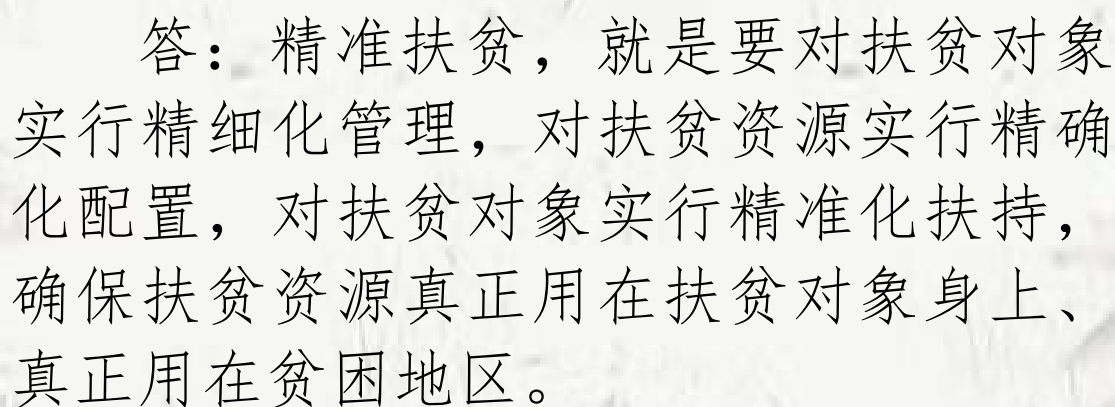 答：精准扶贫，就是要对扶贫对象
实行精细化管理，对扶贫资源实行精确
化配置，对扶贫对象实行精准化扶持，
确保扶贫资源真正用在扶贫对象身上、
真正用在贫困地区。